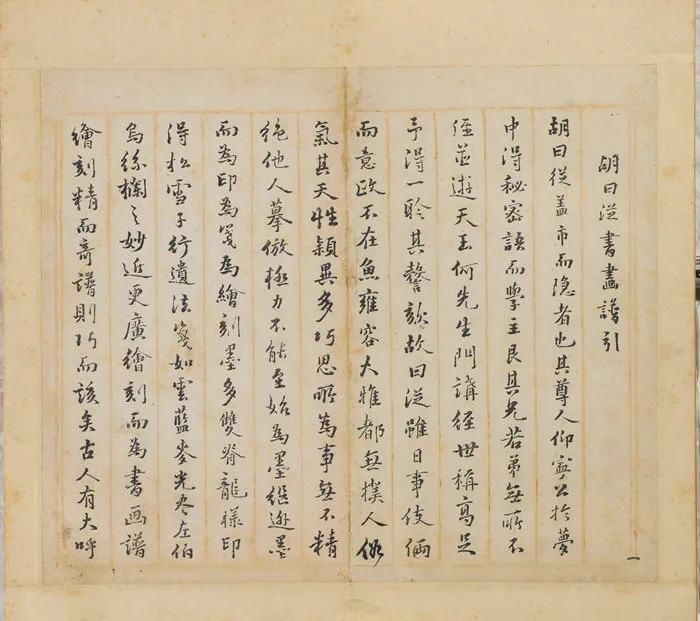 胡曰從書畫譜引
胡曰從盖市而隐者也其尊人仰寧公於夢
中得秘密語而學主艮其兄若弟無所不
經並遊天玉何先生門講經世稱高足
予得一聆其謦欬故曰從雖日事伎倆
而意政不在魚雍容大雅都無撲人俗
氣其天性穎異多巧思所為事無不精
絶他人摹倣極力不能至始為墨繼逃墨
而為印為箋為繪刻墨多雙脊龍樣印
得松雪子行遺法箋如雲藍麥光尽左伯
烏絲欄之妙近更廣繪刻而為書画譜
繪刻精而奇譜則巧而該矣古人有大呼
一